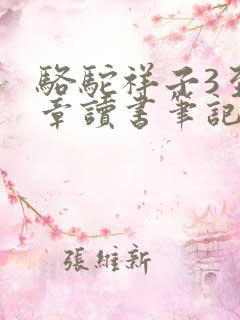 駱駝祥子3至
章讀書筆記
張維新